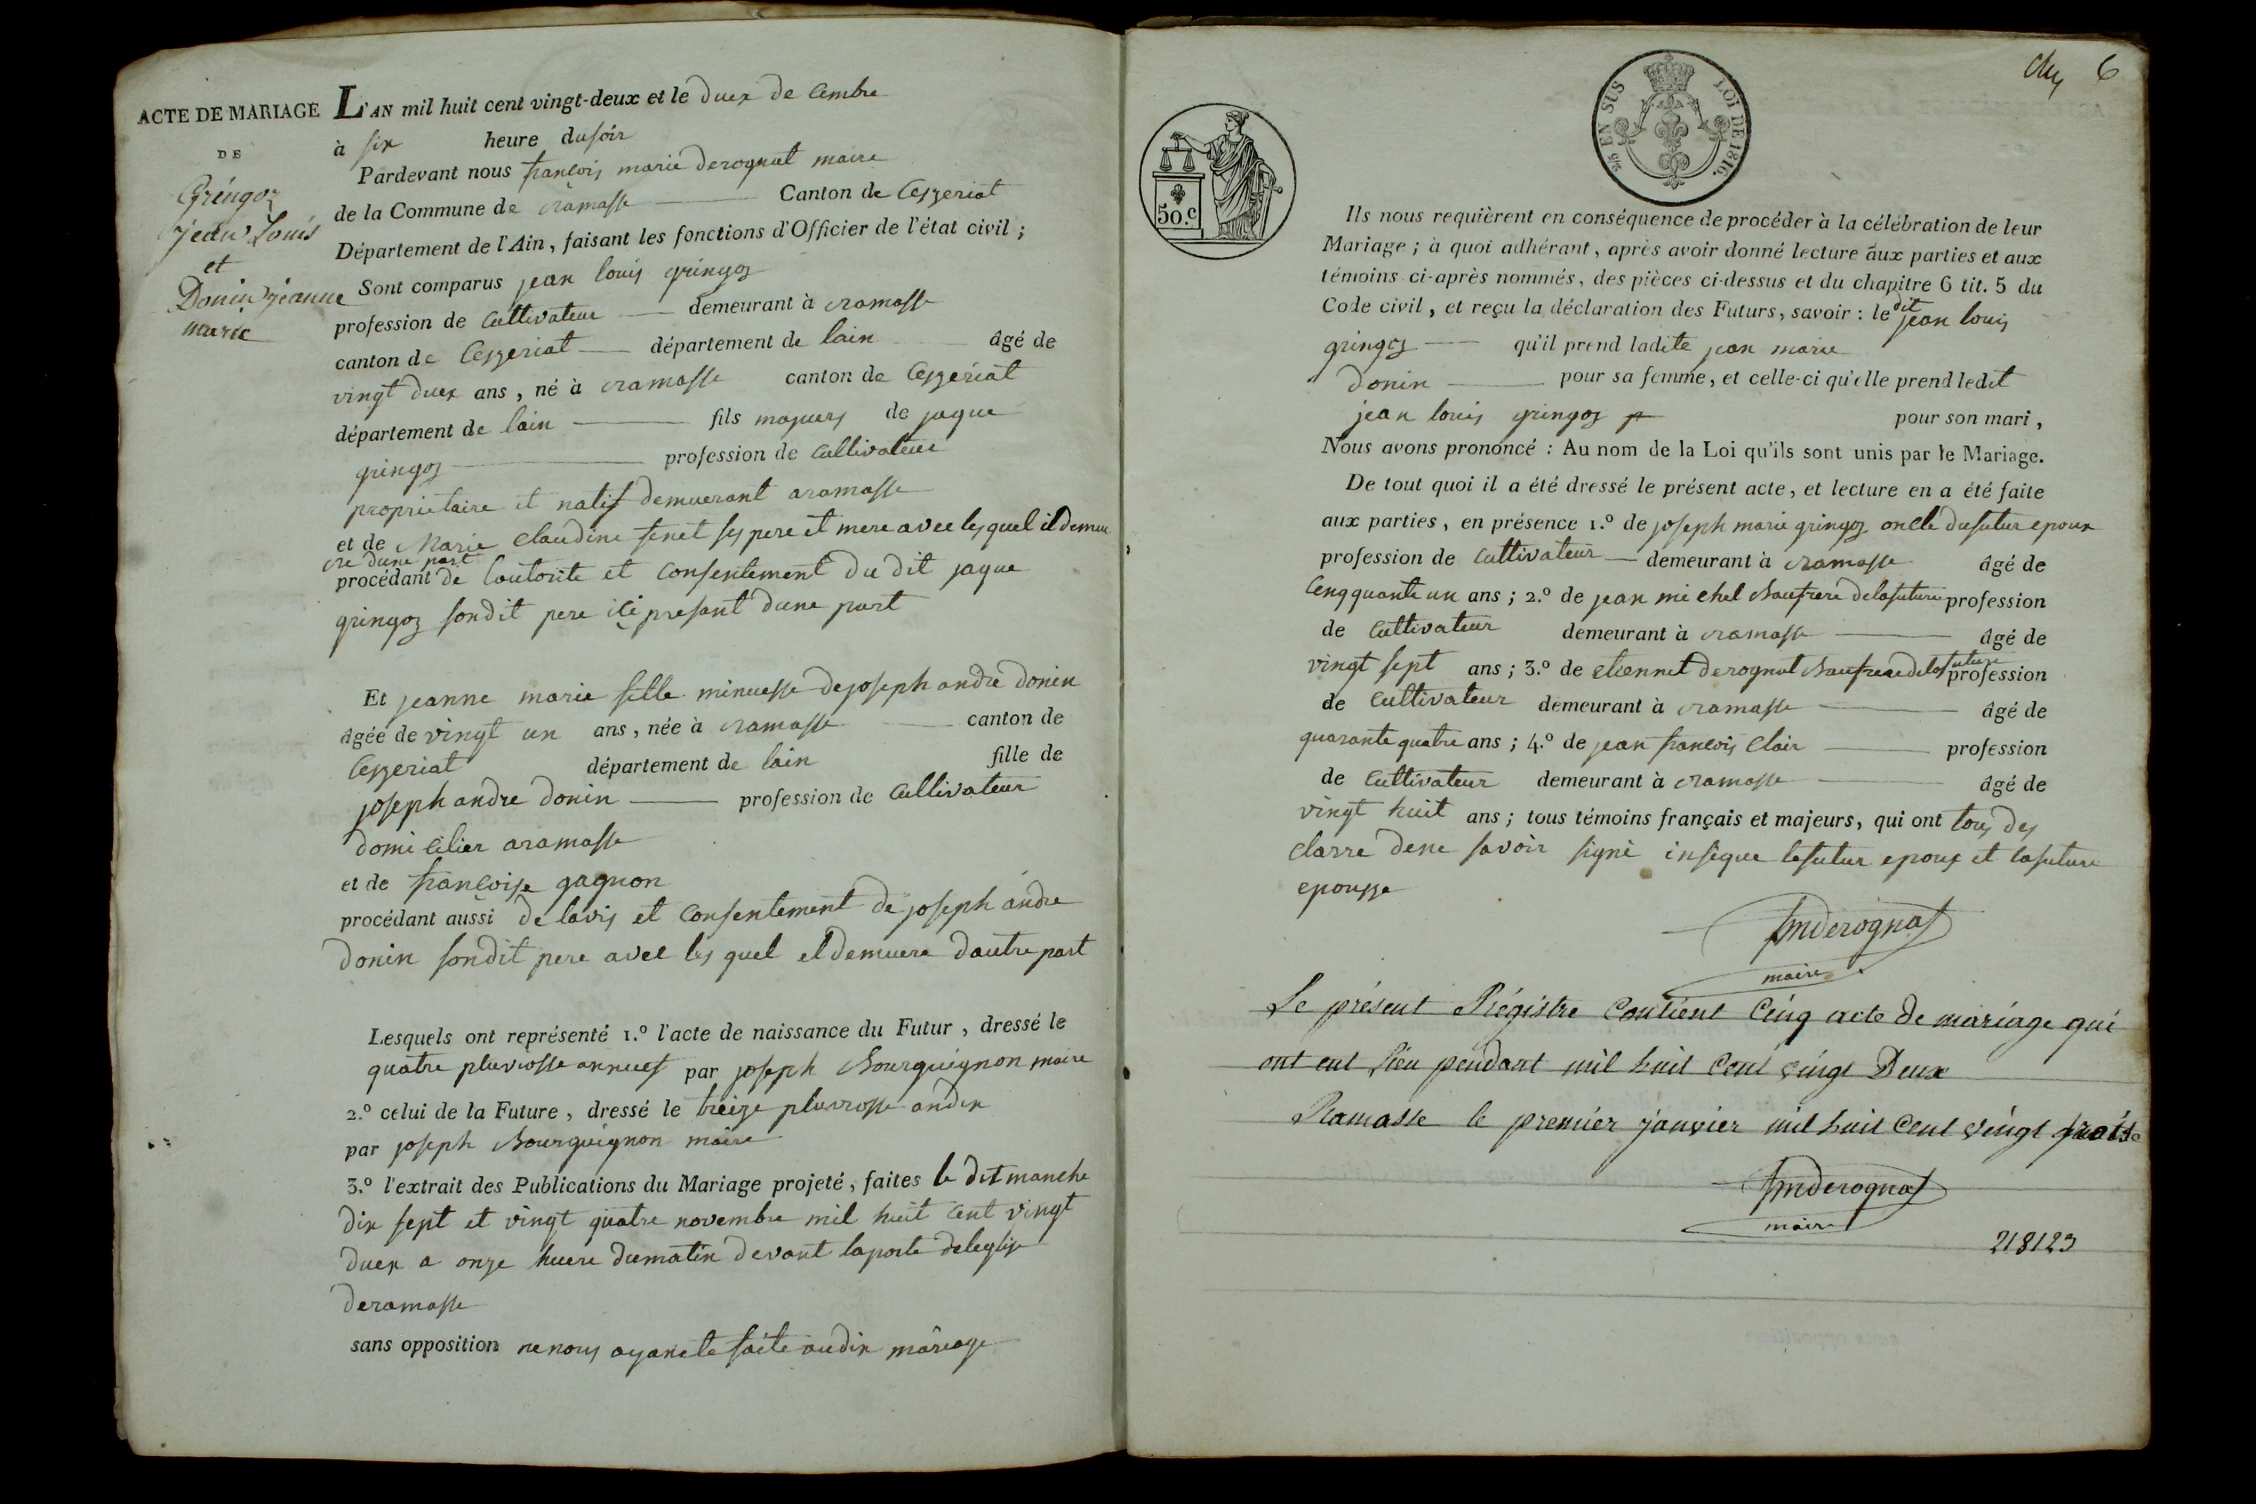 ACTE DE MARIAGE
DE
Gringoz
jean Louis
et
Donin jeanne
marie
L'AN mil huit cent vingt-deux et le duex de cembre
à six heure du soir
Pardevant nous françois marie derognat maire
de la Commune de ramasse Canton de Cezzeriat
Département de l'Ain, faisant les fonctions d'Officier de l'état civil;
Sont comparus jean louis gringoz
profession de cultivateur demeurant à ramasse
canton de Cezzeriat département de lain âgé de
vingt duex ans, né à ramasse canton de Cezzeriat
département de lain fils majuers de jaque
gringoz profession de cultivateur
proprietaire et natif demuerant aramasse
et de Marie Claudine ses pere et mere avec les quel il demue
re dune part
procédant de loutorite et consentement du dit jaque
gringoz sondit pere ici presant dune part
Et jeanne marie fille minuesse de joseph andre donin
âgée de vingt un ans, née à ramasse canton de
Cezzeriat département de lain fille de
joseph andre donin profession de cultivateur
domi cilier aramasse
et de françoise gagnon
procédant aussi de lavis et consentement de joseph andre
donin sondit pere avec les quel el demuere dautre part
Lesquels ont représenté 1.º l'acte de naissance du Futur, dressé le
quatre pluviosse annuef par joseph Bourguignon maire
2.º celui de la Future, dressé le treize pluviosse andix
par joseph Bourguignon maire
3.º l'extrait des Publications du Mariage projeté, faites le ditmanche
dix sept et vingt quatre novembre mil huit cent vingt
duex a onze huere dumatin devant laporte deleglise
deramasse
sans opposition ne nous ayant ete faite audix mariage
6
2/5 EN SUS LOI DE 1816.
50.c
Ils nous requièrent en conséquence de procéder à la célébration de leur
Mariage; à quoi adhérant, après avoir donné lecture aux parties et aux
témoins ci-après nommés, des pièces ci-dessus et du chapitre 6 tit. 5 du
Code civil, et reçu la déclaration des Futurs, savoir: le dit jean louis
gringoz qu'il prend ladite jean marie
donin pour sa femme, et celle-ci qu'elle prend ledit
jean louis gringoz pour son mari,
Nous avons prononcé: Au nom de la Loi qu'ils sont unis par le Mariage.
De tout quoi il a été dressé le présent acte, et lecture en a été faite
aux parties, en présence 1.º de joseph marie gringoz oncle dufutur epoux
profession de cultivateur demeurant à ramasse âgé de
cengquante un ans; 2.º de jean michel Baufrere delafuture profession
de cultivateur demeurant à ramasse âgé de
vingt sept ans; 3.º de etiennet derognat Baufrere delafuture profession
de cultivateur demeurant à ramasse âgé de
quarante quatre ans; 4.º de jean françois Clair profession
de cultivateur demeurant à ramasse âgé de
vingt huit ans; tous témoins français et majeurs, qui ont tous des
clarre dene savoir signé insique lefutur epoux et lafuture
epousse
fmderognat
maire
Le présent Régistre Contient Cinq acte de mariage qui
ont eut lieu pendant mil huit Cent vingt Deux
Ramasse le premier janvier mil huit Cent vingt trois
fmderognat
maire
218123